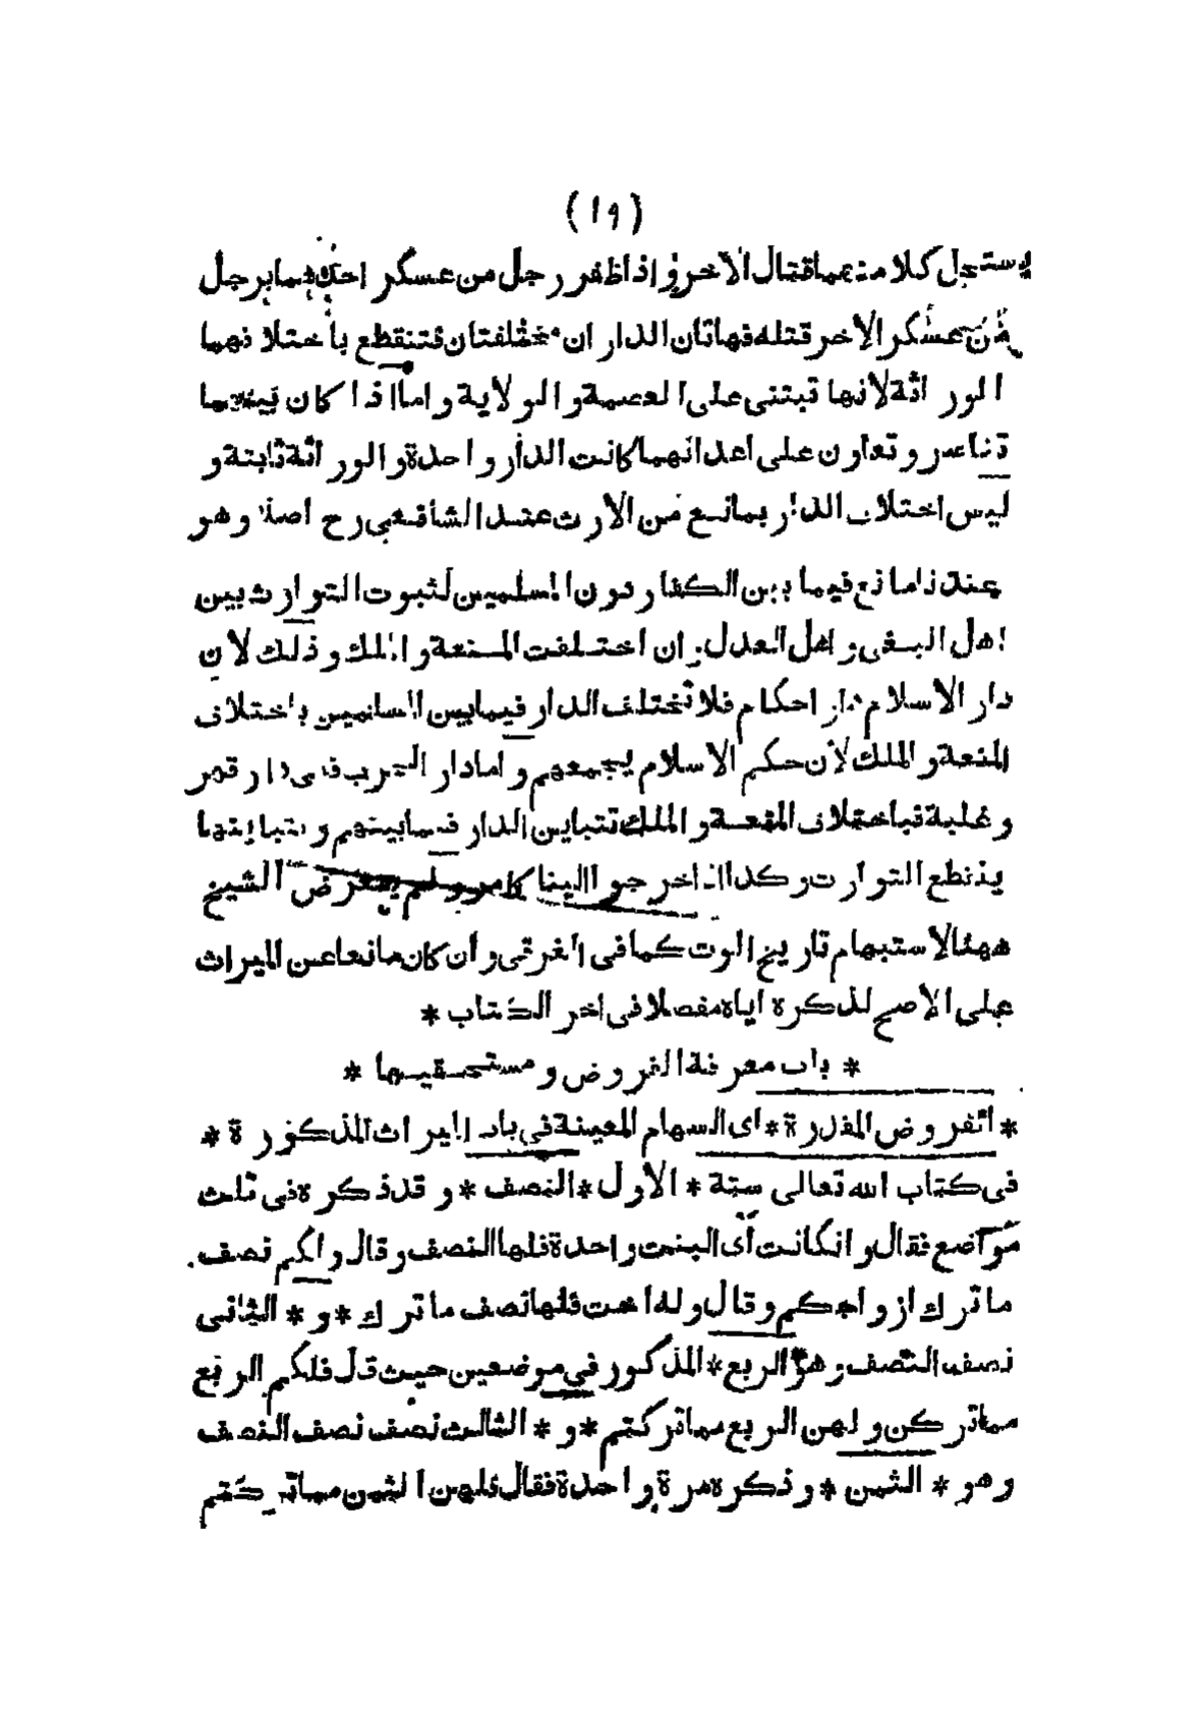 (١٩)
يستحل كلا منهما قتال الآخر و اذا ظفر رجل من عسكر احدهما برجل
من عسكر الاخر قتله فهاتان الدار ان مختلفتان فتنقطع باختلافهما
الوراثة لانها تبتنى على العصمة و الولاية و اما اذا كان بينهما
تناصر و تعاون على اعدائهما كانت الدار واحدة و الوراثة ثابتة و
ليس اختلاف الدار بمانع من الارث عند الشافعى رح اصلا و هو
عندنا مانع فيما بين الكفار دون المسلمين لثبوت التوارث بين
اهل البغى و اهل العدل و ان اختلفت المنعة و الملك و ذلك لان
دار الاسلام دار احكام فلا تختلف الدار فيما بين المسلمين باختلاف
المنعة و الملك لان حكم الاسلام يجمعهم و اما دار الحرب فهى دار قهر
و غلبة فباختلاف المنعة و الملك تتباين الدار فيما بينهم و بتباينها
ينقطع التوارث و كذا اذا خرجوا الينا كما مر و لم يتعرض الشيخ
ههنا لاستبهام تاريخ الموت كما فى الغرقى و ان كان مانعا عن الميراث
على الاصح لذكره اياه مفصلا فى اخر الكتاب *
* باب معرفة الفروض و مستحقيها *
* الفروض المقدرة * اى السهام المعينة في باب الميراث المذكورة *
فى كتاب الله تعالى ستة * الاول * النصف * و قد ذكره فى ثلث
مواضع فقال و انكانت أى البنت واحدة فلها النصف و قال و لكم نصف
ما ترك ازواجكم و قال و له اخت فلها نصف ما ترك * و * الثانى
نصف النصف و هو الربع * المذكور في موضعين حيث قال فلكم الربع
مما تركن و لهن الربع مما تركتم * و * الثالث نصف نصف النصف
و هو * الثمن * و ذكره مرة واحدة فقال فلهن الثمن مما تركتم